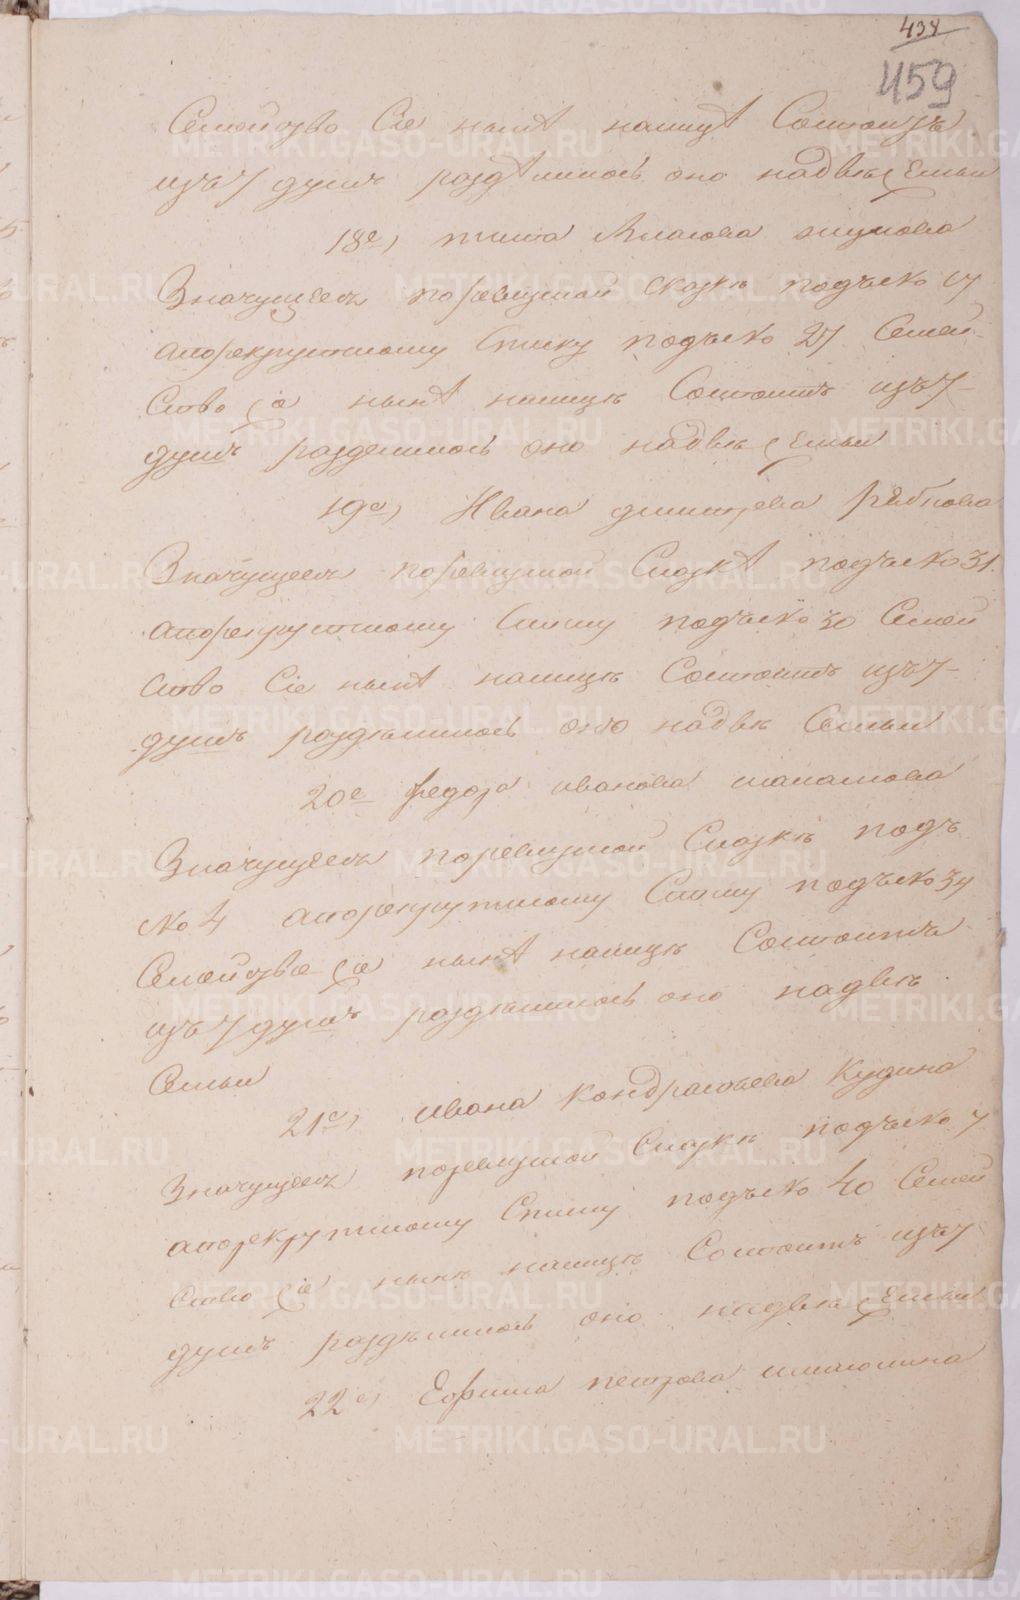 438
459
Семейство Сіе нынѣ налицѣ Состоитъ
изъ 7 душъ раздѣлилось оно надвѣ Семьи
18е, тита Власова
Значущемъ поревизской сказкѣ подъ№ 17
апорекрутскому Списку подъ№ 27 Семей
ство Сіе нынѣ налицѣ Состоитъ изъ 7
душъ разделилось оно надвѣ Семьи
19е, Ивана дмитрева Рябкова
Значущемъ поревизской Сказкѣ подъ№ 31
апорекрутскому Списку подъ№ 30 Семей
ство Сіе нынѣ налицѣ Состоитъ изъ 7
душъ раздѣлилось оно надвѣ Семьи
20е федора иванова
Значущемъ поревизской Сказкѣ подъ
№ 4 апорекрутскому Списку подъ№ 34
Семейство Сіе нынѣ налицѣ Состоитъ
изъ 7 душъ раздѣлилось оно надвѣ
Семьи
21е, ивана Кондратьева Кудина
Значущемъ поревизской Сказкѣ подъ№ 7
апорекрутскому Списку подъ№ 40 Семей
ство Сіе нынѣ налицѣ Состоитъ изъ 7
душъ раздѣлилось оно надвѣ Семьи
22е, Ефима петрова
METRIKI.GASO-URAL.RU